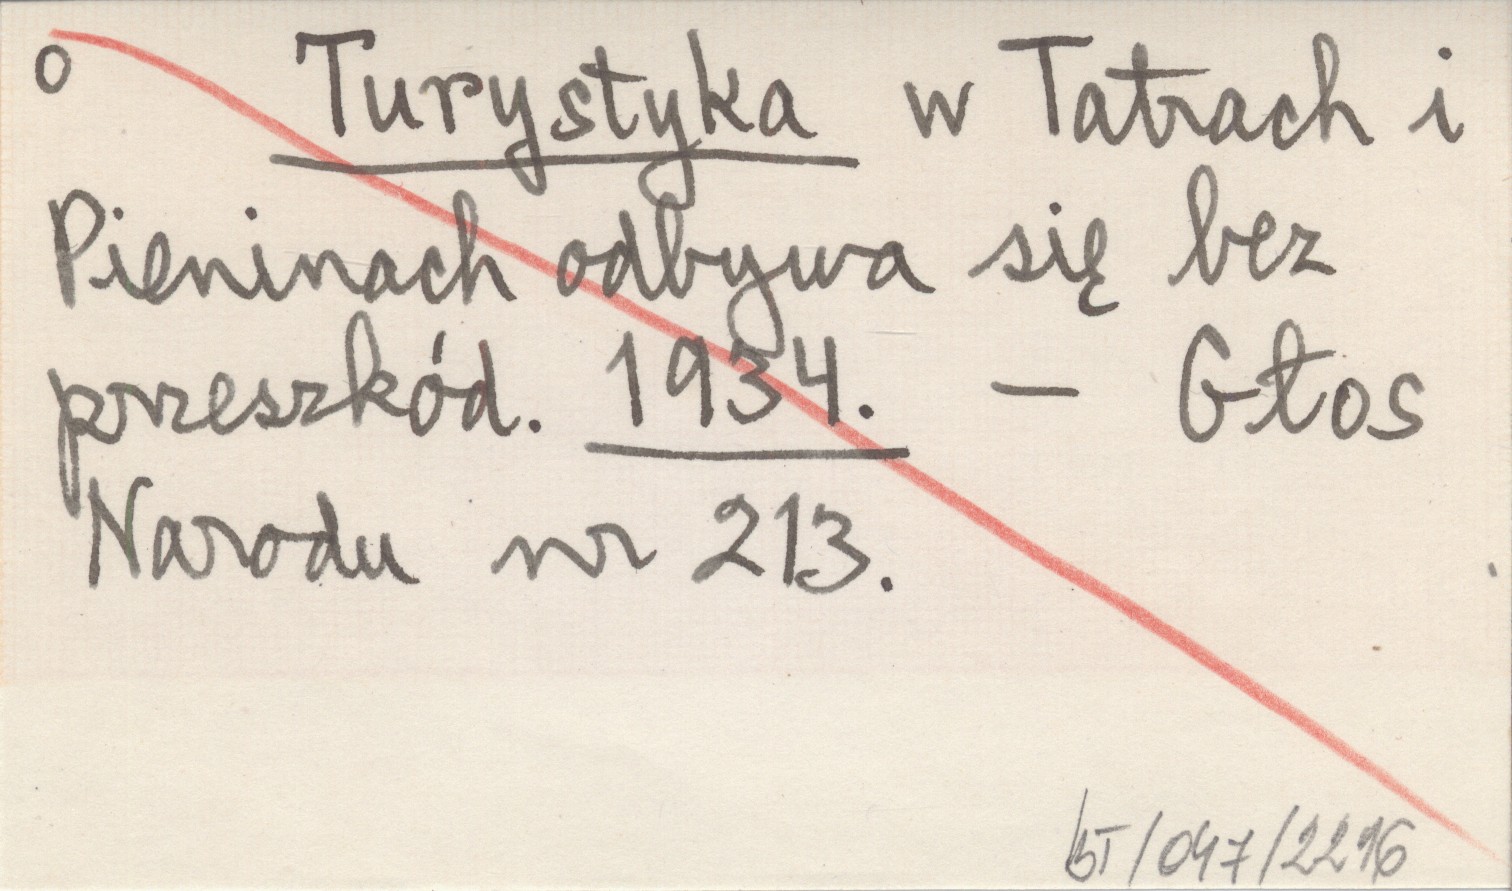 o Turystyka w Tatrach i
Pieninach odbywa się bez
przeszkód. 1934. — Głos
Narodu nr 213.
BT/047/2216